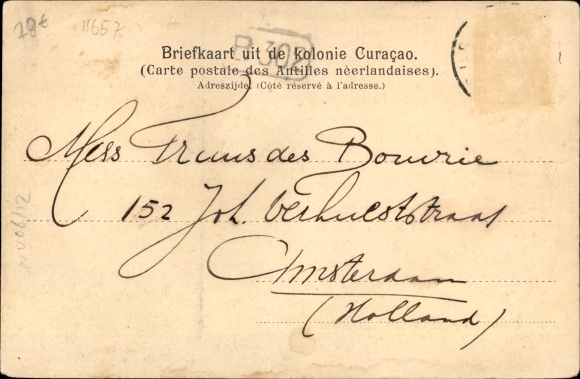 28€ 11657
B 303
Briefkaart uit de kolonie Curaçao.
(Carte postale des Antilles néerlandaises).
Adreszijde. (Côté réservé à l'adresse.)
Mess Truus des Bouvrie
152 Joh. Verhulststraat
Amsterdam
(Holland)